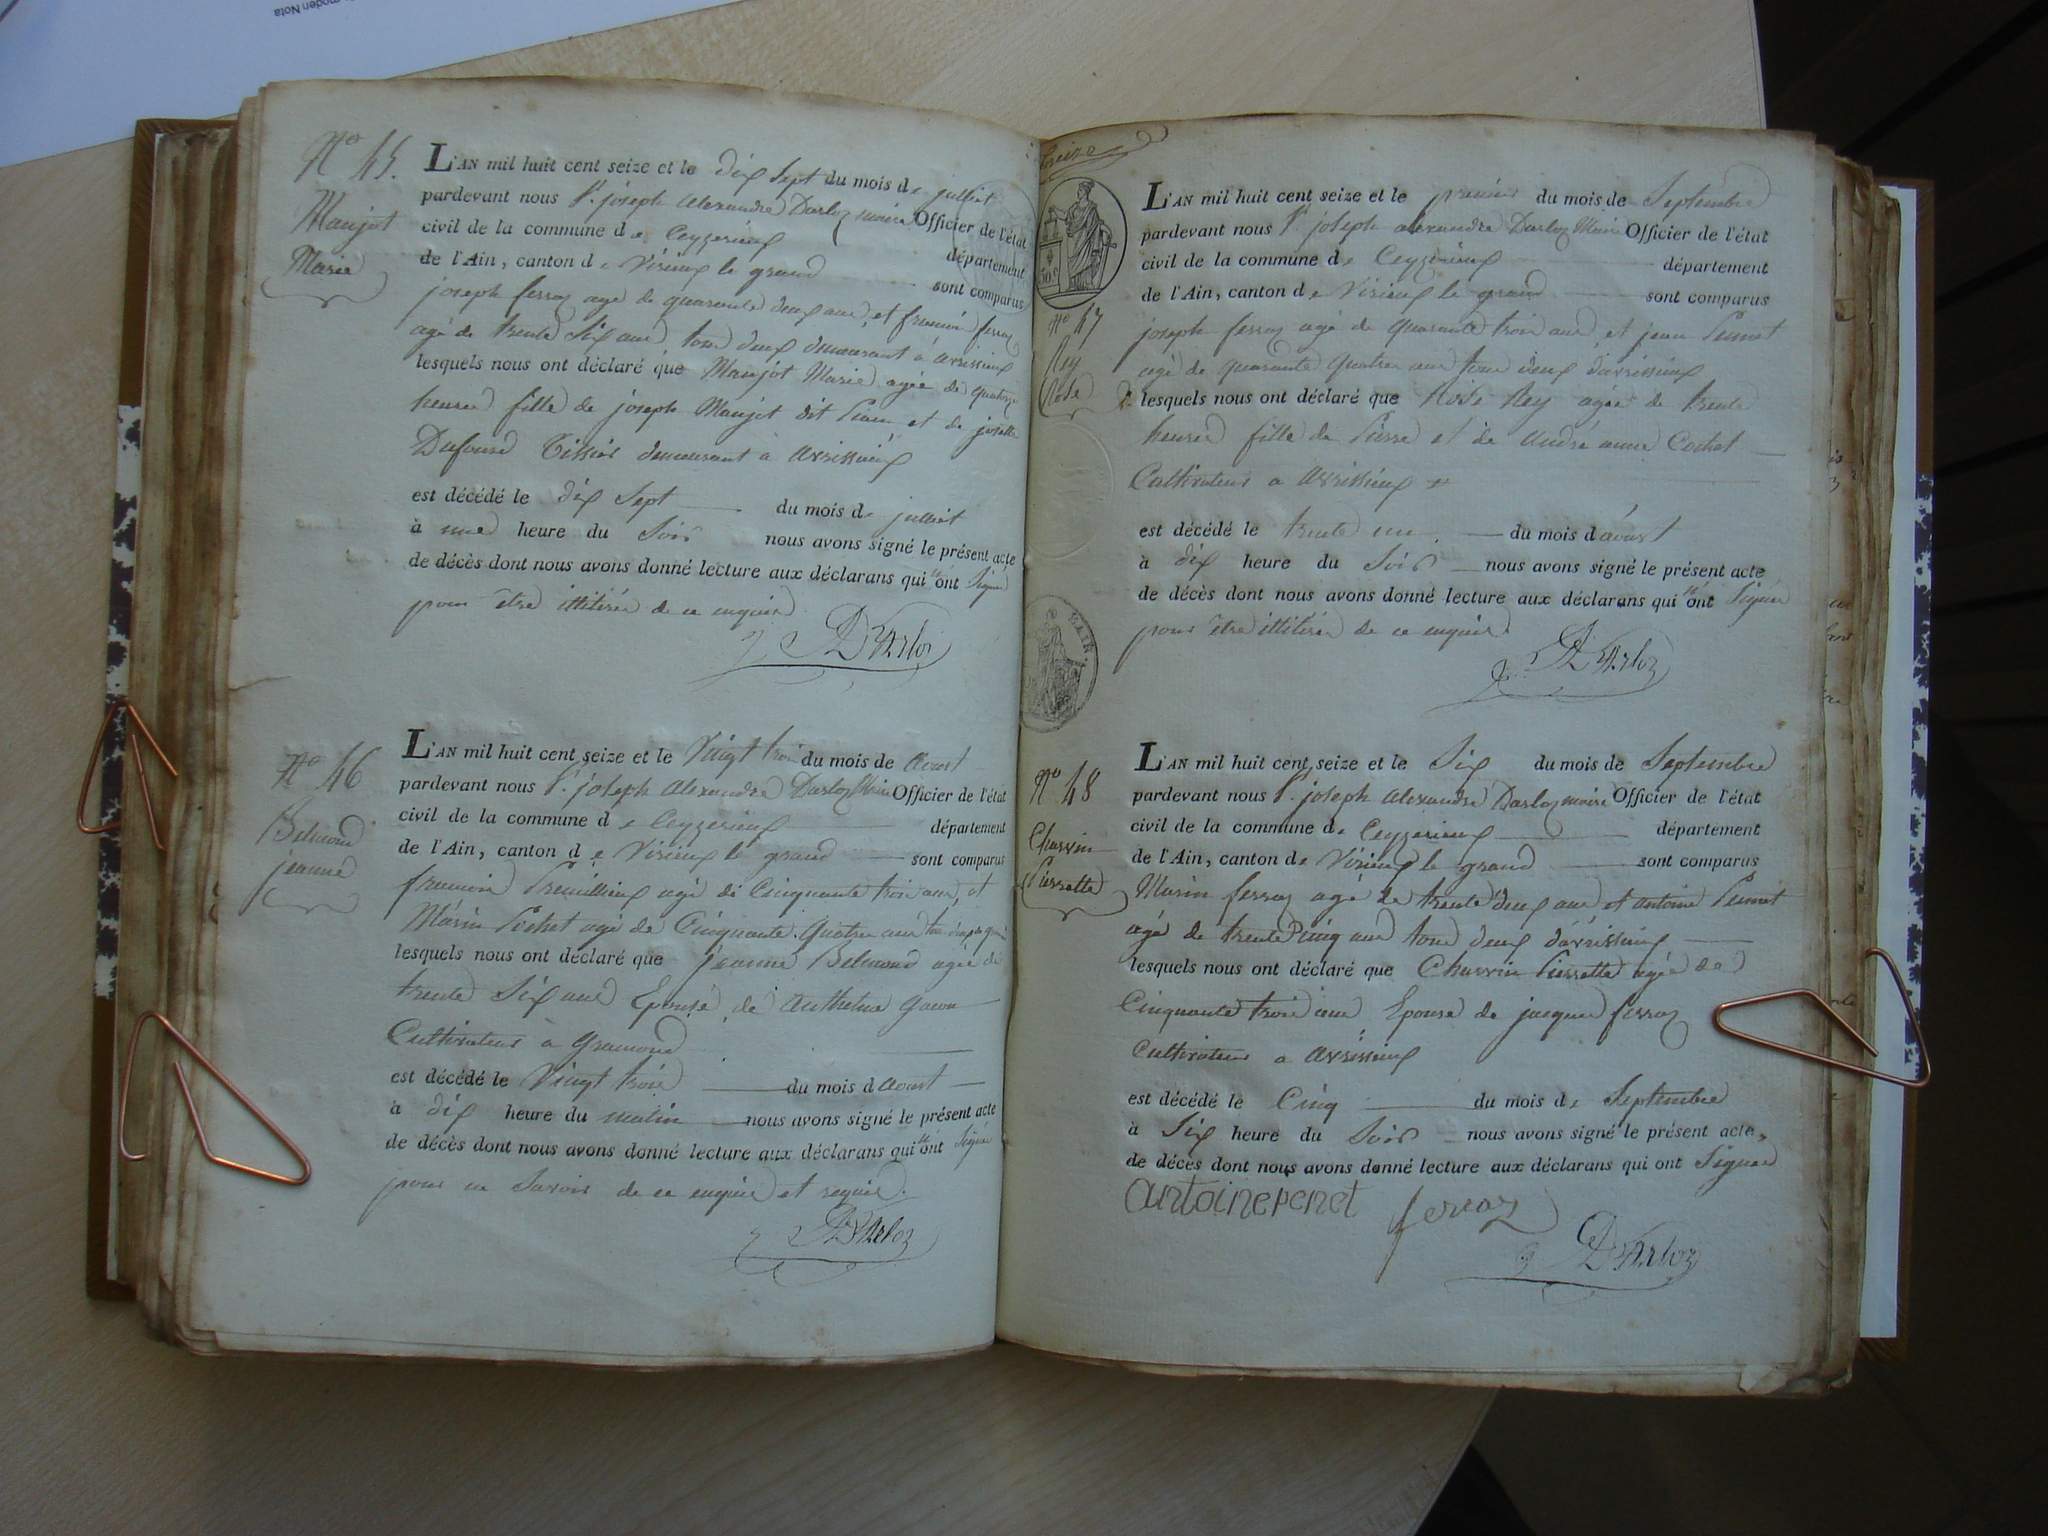 moden Nota
N.º 45.
Maujot
Marie
L'AN mil huit cent seize et le dix sept du mois de julliet
pardevant nous P.r joseph alexandre Darloz maire Officier de l'état
civil de la commune de Ceyzerieux département
de l'Ain, canton de Virieux le grand sont comparus
joseph ferroz agé de quarante deux ans et ferroz
agé de trente six ans tous deux demeurant à avrissieux
lesquels nous ont déclaré que Maujot Marie agée de quatorze
heures fille de joseph Maujot dit et de
Dufour Tissier demeurant à avrissieux
est décédé le dix sept du mois de julliet
à une heure du Soir nous avons signé le présent acte
de décès dont nous avons donné lecture aux déclarans qui n'ont Signé
pour être illitérés de ce enquis
DArloz
N.º 46
Belmond
jeanne
L'AN mil huit cent seize et le Vingt trois du mois de Aoust
pardevant nous P.r joseph Alexandre Darloz Maire Officier de l'état
civil de la commune de Ceyzerieux département
de l'Ain, canton de Virieux le grand sont comparus
agé de Cinquante trois ans, et
Marin agé de Cinquante Quatre ans
lesquels nous ont déclaré que jeanne Belmond agée de
trente Six ans Epouse de Anthelme
Cultivateur à
est décédé le Vingt trois du mois d Aoust
à dix heure du matin nous avons signé le présent acte
de décès dont nous avons donné lecture aux déclarans qui n'ont Signé
pour ne Savoir de ce enquis et requis.
DArloz
treize
N.º 47
Rey
Rose
L'AN mil huit cent seize et le premier du mois de Septembre
pardevant nous P.r joseph alexandre Darloz Maire Officier de l'état
civil de la commune de Ceyzerieux département
de l'Ain, canton de Virieux le grand sont comparus
joseph ferroz agé de quarante trois ans et jean Penet
agé de quarante quatre ans tous deux d'avrissieux
lesquels nous ont déclaré que Rose Rey agée de trente
heures fille de Pierre et de andré anne Cochet
Cultivateur a avrissieux
est décédé le trente un du mois d'aoust
à dix heure du Soir nous avons signé le présent acte
de décès dont nous avons donné lecture aux déclarans qui n'ont Signé
pour être illitérés de ce enquis
DArloz
N.º 48
Charvin
Pierrette
L'AN mil huit cent seize et le Six du mois de Septembre
pardevant nous P.r joseph Alexandre Darloz maire Officier de l'état
civil de la commune de Ceyzerieux département
de l'Ain, canton de Virieux le grand sont comparus
Marin ferroz agé de trente deux ans et antoine Penet
agé de trente Cinq ans tous deux d'avrissieux
lesquels nous ont déclaré que Charvin Pierrette agée de
Cinquante trois ans Epouse de jacques ferroz
Cultivateur a avrissieux
est décédé le Cinq du mois de Septembre
à Six heure du Soir nous avons signé le présent acte
de décès dont nous avons donné lecture aux déclarans qui ont Signé
antoine penet ferroz
DArloz